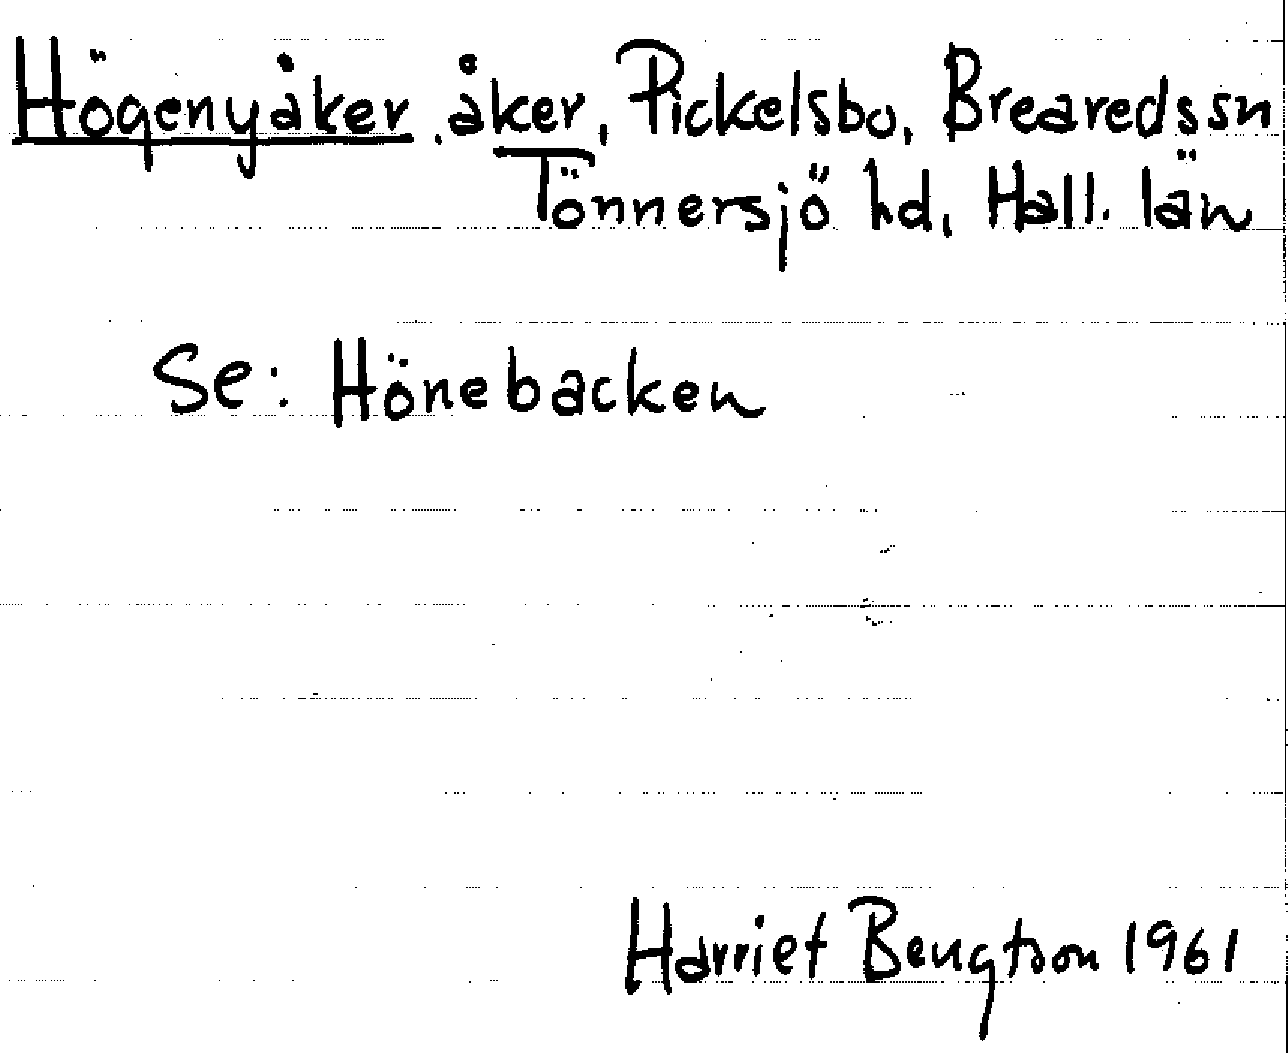 Högenyåker, åker, Pickelsbo, Breareds sn
Tönnersjö hd, Hall. län
Se: Hönebacken
Harriet Bengtson 1961